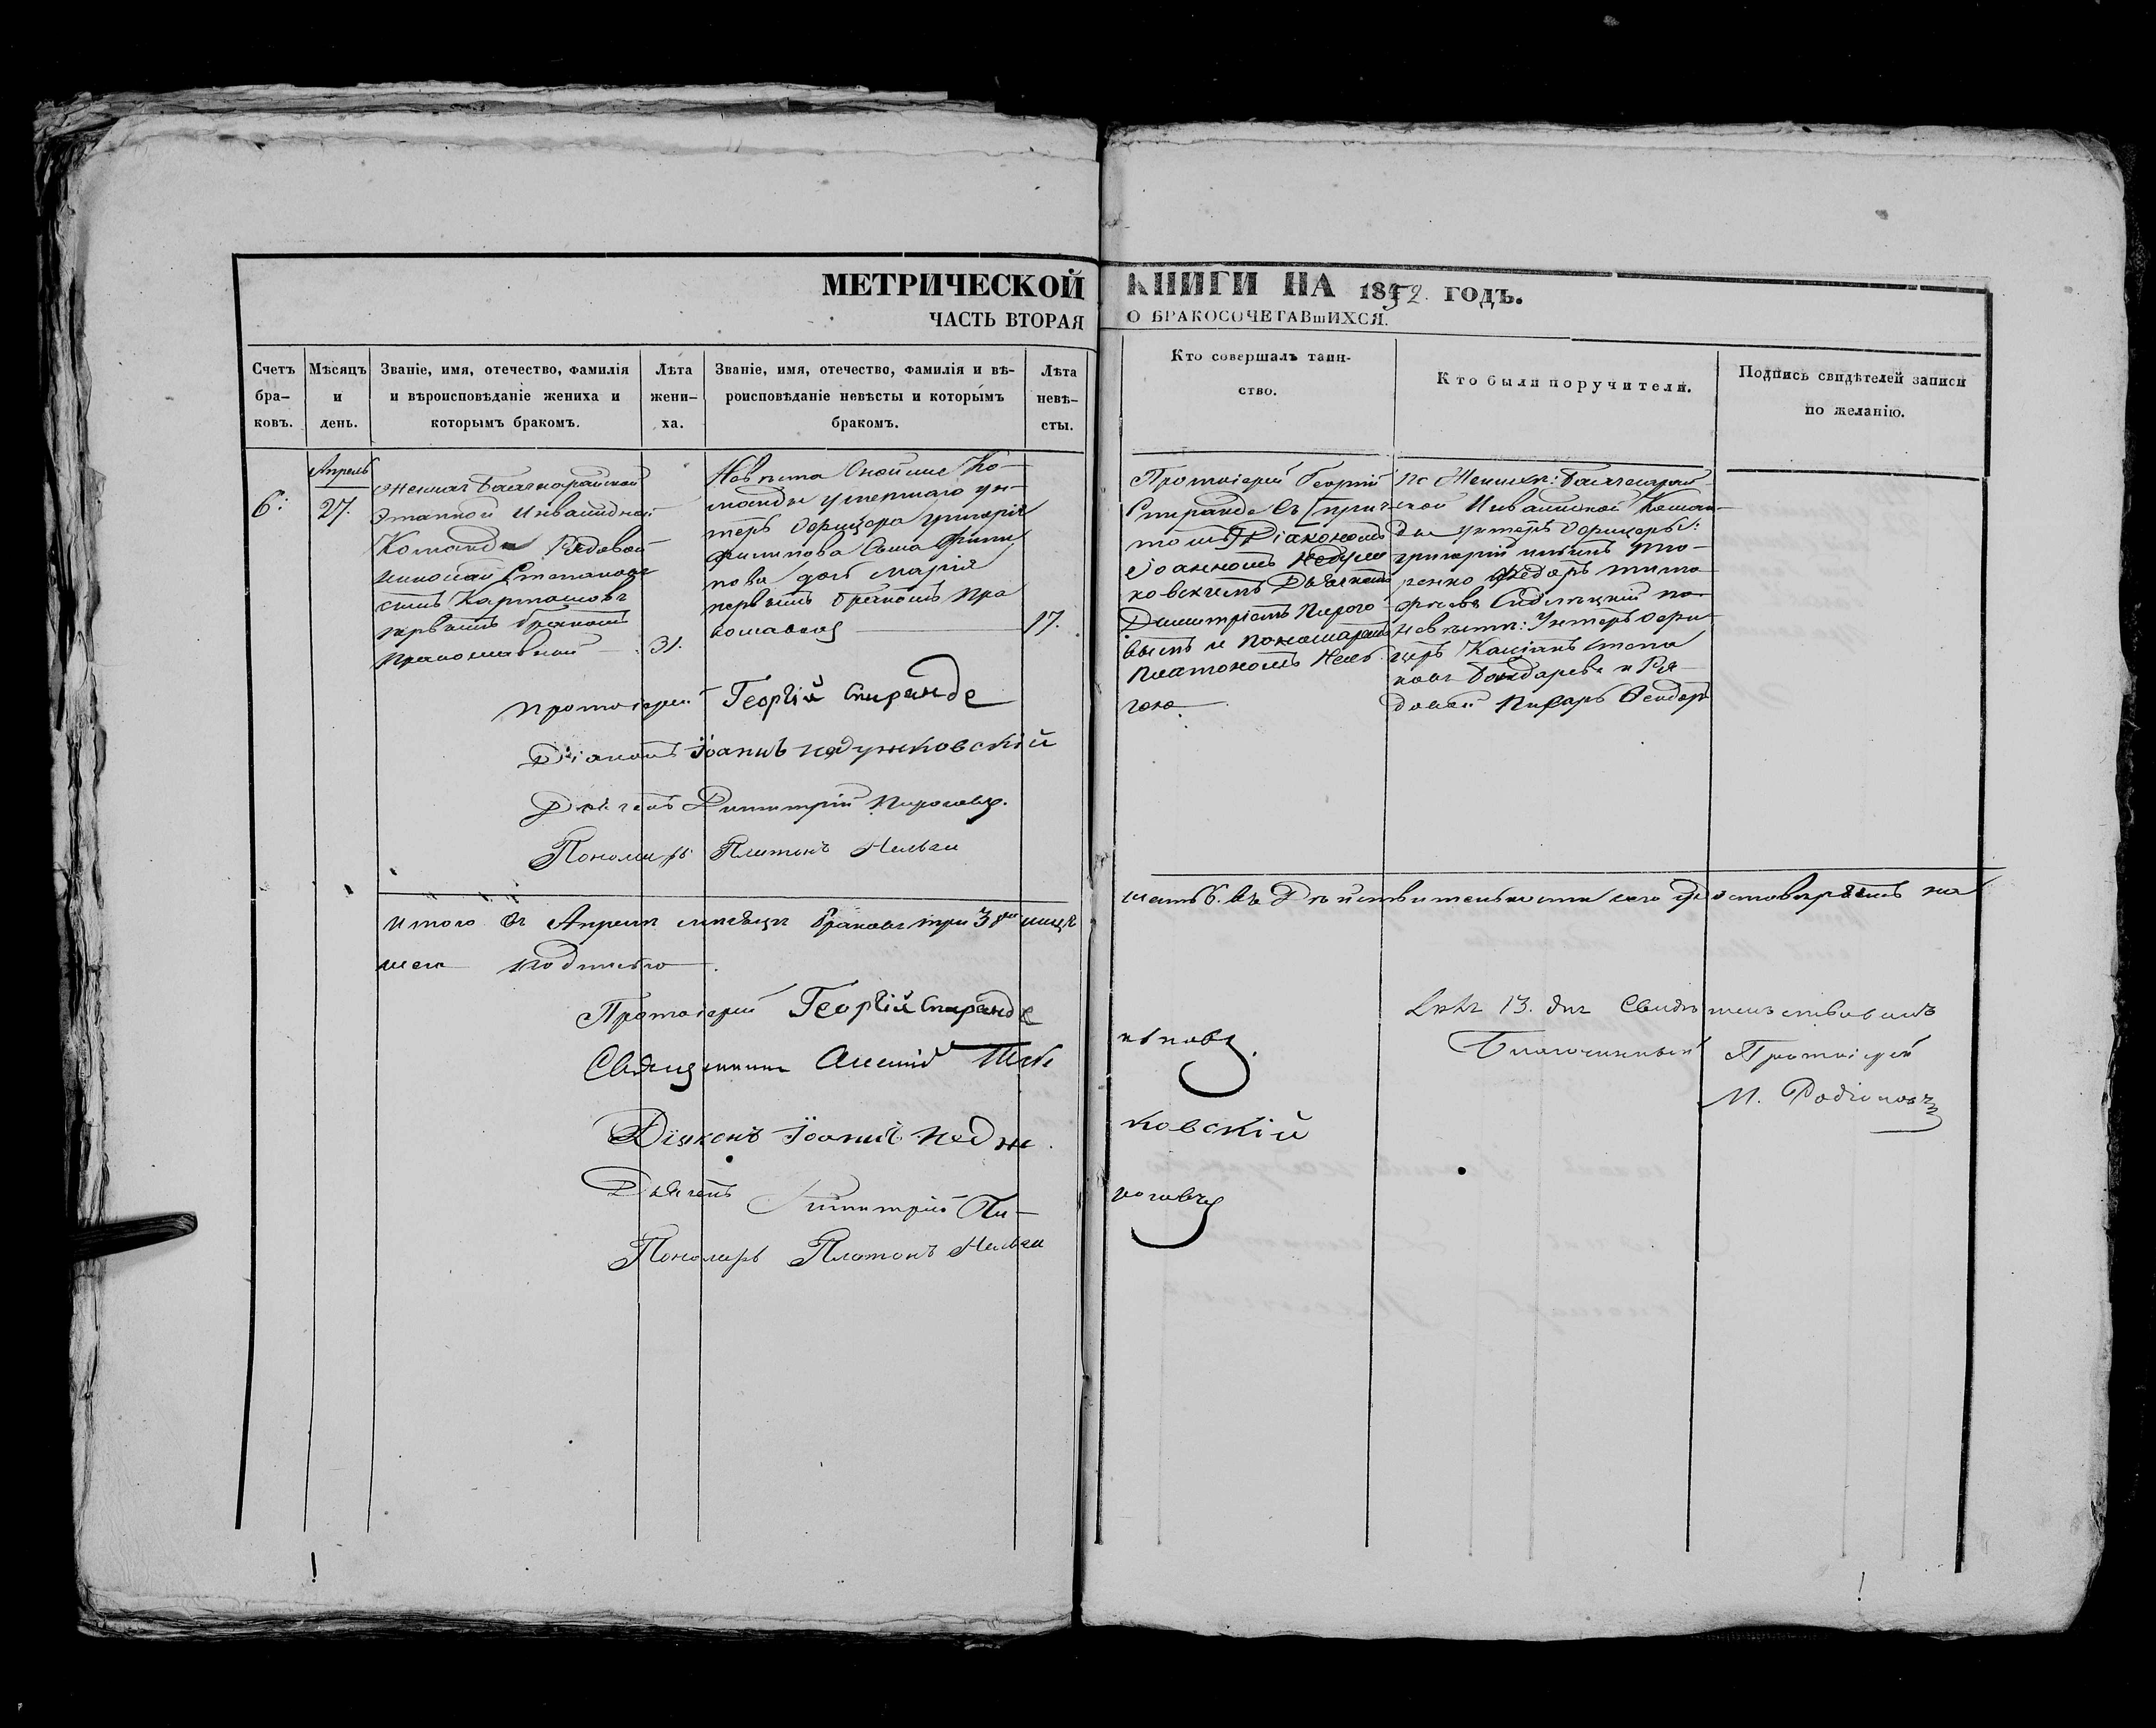 МЕТРИЧЕСКОЙ КНИГИ НА 1852 ГОДЪ.
ЧАСТЬ ВТОРАЯ О БРАКОСОЧЕТАВШИХСЯ.
Счетъ бра-
ковъ.
Мѣсяцъ
и
день.
Званіе, имя, отечество, фамилія
и вѣроисповѣданіе жениха и
которымъ бракомъ.
Лѣта
жени-
ха.
Званіе, имя, отечество, фамилія и вѣ-
роисповѣданіе невѣсты и которымъ
бракомъ.
Лѣта
невѣ-
сты.
Кто совершалъ таин-
ство.
Кто были поручители.
Подпись свидѣтелей записи
по желанію.
6:
Апрель
27.
Женихъ Бахчисарайской
Этапной Инвалидной
Команды Рядовой
Николай Степановъ
сынъ Карташовъ
первымъ бракомъ
православной
31.
Невѣста Оной же Ко-
манды умершаго ун-
теръ Офицера Григорія
Филипова
дочь Марія
первымъ бракомъ пра
вославная
17.
Протоіерей Георгій
Спиранде съ прич
томъ Діакономъ
Іоанномъ Недуж
ковскимъ Дьячкомъ
Димитріемъ Пирого
вымъ и пономаремъ
Платономъ Нель
гою
По Женихѣ: Бахчисарай
ской Инвалидной Коман-
ды унтеръ Офицеры:
Григорій
Федоръ Тимо
фѣевъ по
Невѣстѣ: Унтеръ Офи
церъ Касіанъ Степа
новъ Бондаревъ и Ря-
довой Писарь Феодоръ
Протоіерей Георгій Спиранде
Діаконъ Іоаннъ Недужковскій
Дьячекъ Димитрій Пироговъ.
Пономарь Платонъ Нельги
Итого въ Апрелѣ месяцѣ браковъ три 3
шесть 6. въ Дѣйствительности сего удостовѣряемъ на
шею подписью
Протоіерей Георгій Спиранде
Священникъ
Діаконъ Іоаннъ Недуж
ковскій
Дьячекъ Димитрій Пи-
роговъ
Пономарь Платонъ Нельги
13. дня Свидѣтельствовалъ
Благочинный Протоіерей
М. Родіоновъ